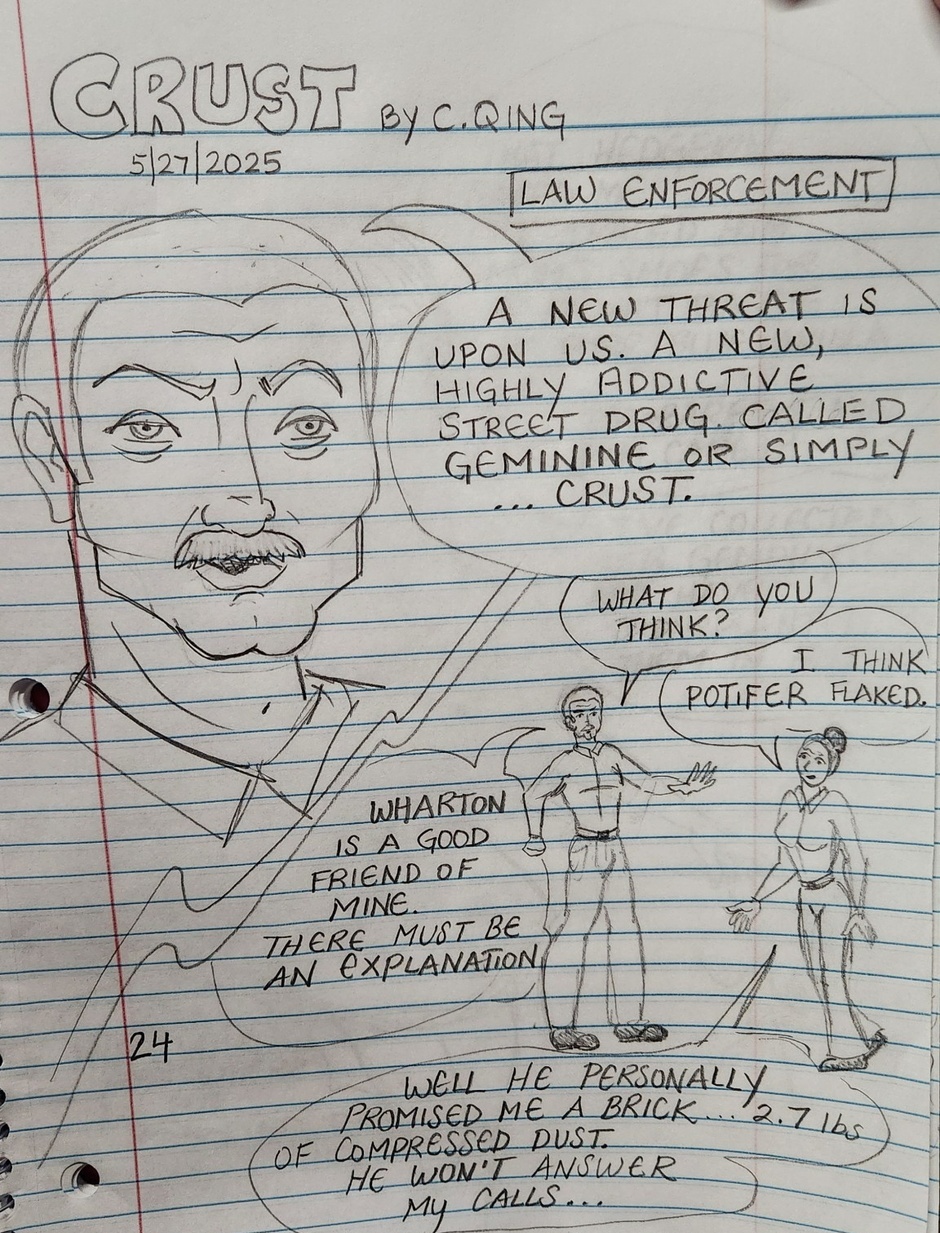 CRUST BY C.QING
5/27/2025
LAW ENFORCEMENT
A NEW THREAT IS
UPON US. A NEW,
HIGHLY ADDICTIVE
STREET DRUG. CALLED
GEMININE OR SIMPLY
... CRUST.
WHAT DO YOU
THINK?
I THINK
POTIFER FLAKED.
WHARTON
IS A GOOD
FRIEND OF
MINE.
THERE MUST BE
AN EXPLANATION
24
WELL HE PERSONALLY
PROMISED ME A BRICK... 2.7 lbs
OF COMPRESSED DUST.
HE WON'T ANSWER
MY CALLS...